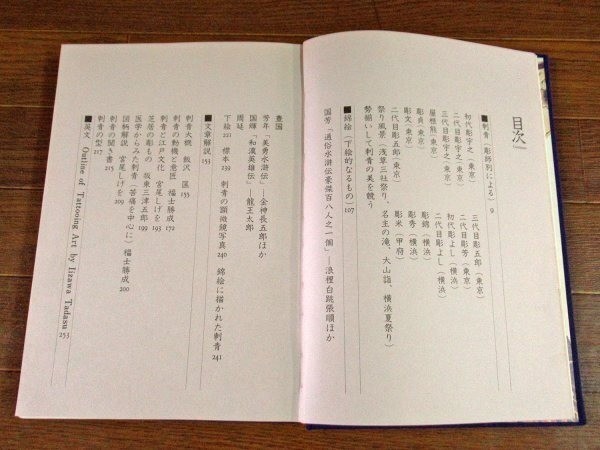 目次
■刺青（彫師別による）9
初代彫宇之（東京）
二代目彫宇之（東京）
三代目彫宇之（東京）
屋根熊（東京）
彫貞（東京）
彫文（東京）
二代目彫五郎（東京）
三代目彫五郎（東京）
二代目彫芳（東京）
初代彫よし（横浜）
二代目彫よし（横浜）
彫錦（横浜）
彫秀（横浜）
彫米（甲府）
祭り風景（浅草三社祭り、名主の滝、大山詣、横浜夏祭り）
勢揃いして刺青の美を競う
■錦絵（下絵的なるもの）107
国芳「通俗水滸伝豪傑百八人之一個」―浪裡白跳張順ほか
豊国
芳年「美勇水滸伝」―金神長五郎ほか
国輝「和漢英雄伝」―龍王太郎
周延
下絵 221 標本 239 刺青の顕微鏡写真 240 錦絵に描かれた刺青 241
■文章解説 153
刺青大概 飯沢 匡 155
刺青の動機と意匠 福士勝成 172
刺青と江戸文化 宮尾しげを 185
芝居の彫もの 坂東三津五郎 199
医学からみた刺青（苦痛を中心に）福士勝成 200
図柄解説 宮尾しげを 209
刺青の聞き書 215
刺青の型 217
■英文 Outline of Tattooing Art by Iizawa Tadasu 253